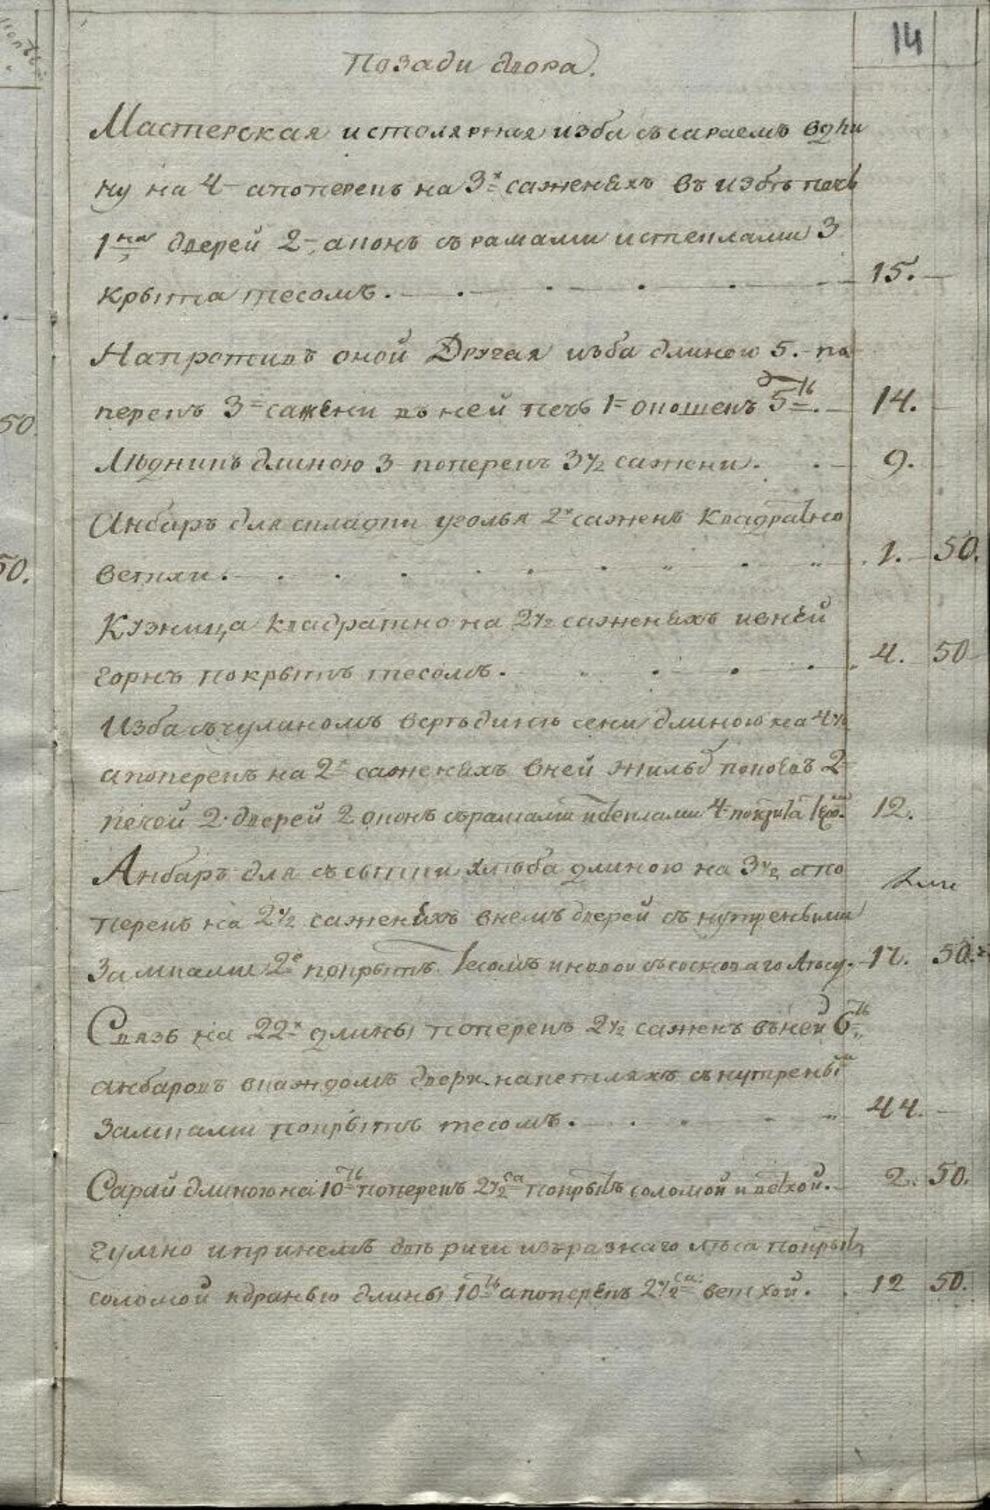 14
Позади двора.
Мастерская и столярная изба съ сараемъ в длин
ну на 4 а поперекъ на 3х саженяхъ въ избѣ печь
1на дверей 2 аконъ с рамами и стеклами 3
крыта тесомъ. 15.
На противъ оной Другая изба длиною 5. по
перекъ 3 сажени въ ней печь 1 окошекъ 5ть. 14.
Лѣдникъ длиною 3 поперекъ 3 1/2 сажени. 9.
Анбаръ для складки уголья 2х саженъ квадратно
ветхи. 1. 50.
Кузница квадратно на 2 1/2 саженяхъ и в ней
горнъ покрытъ тесомъ. 4. 50
Изба съ чуланомъ в сени длиною на 4 1/2
а поперекъ на 2х саженяхъ в ней жилыхъ покоевъ 2
печей 2 дверей 2 оконъ съ рамами и стеклами 4 покрыта 12.
Анбаръ для съсыпки хлѣба длиною на 3 1/2 а по
перекъ на 2 1/2 саженяхъ в немъ дверей съ нутреными
Замками 2е покрытъ тесомъ и новой съ сосноваго лѣсу. 17. 50.
Связь на 22х длины поперекъ 2 1/2 саженъ въ ней 6ть
анбаровъ в каждомъ двери на петляхъ с нутреными
Замками покрытъ тесомъ. 44.
Сарай длиною на 10ть поперекъ 2 1/2 са покрытъ соломой и ветхой. 2. 50.
гумно и при немъ двѣ риги изъ разнаго лѣса покрыта
соломой и дранью длины 10ть а поперекъ 2 1/2 са: ветхой. 12 50.